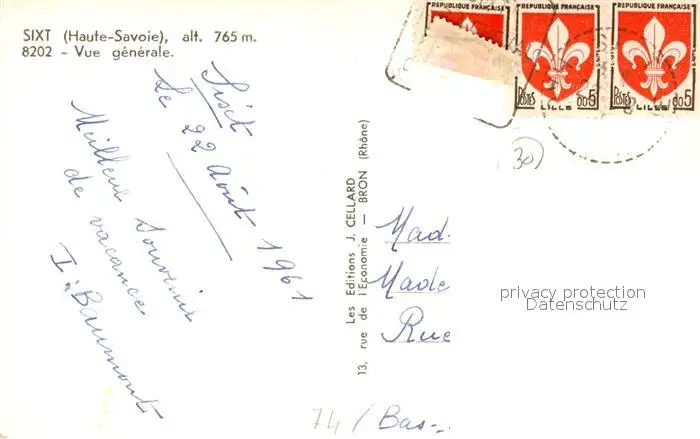 SIXT (Haute-Savoie), alt. 765 m.
8202 - Vue générale.
Sixt
Le 22 Août 1961
Meilleur Souvenir
de vacance
I. Baumont
13, rue de l'Economie — BRON (Rhône)
Les Editions J. CELLARD
REPUBLIQUE FRANÇAISE
REPUBLIQUE FRANÇAISE
REPUBLIQUE FRANÇAISE
POSTES LILLE 0,05
POSTES LILLE 0,05
30
Mad.
Made
Rue
privacy protection
Datenschutz
74 / Bas-